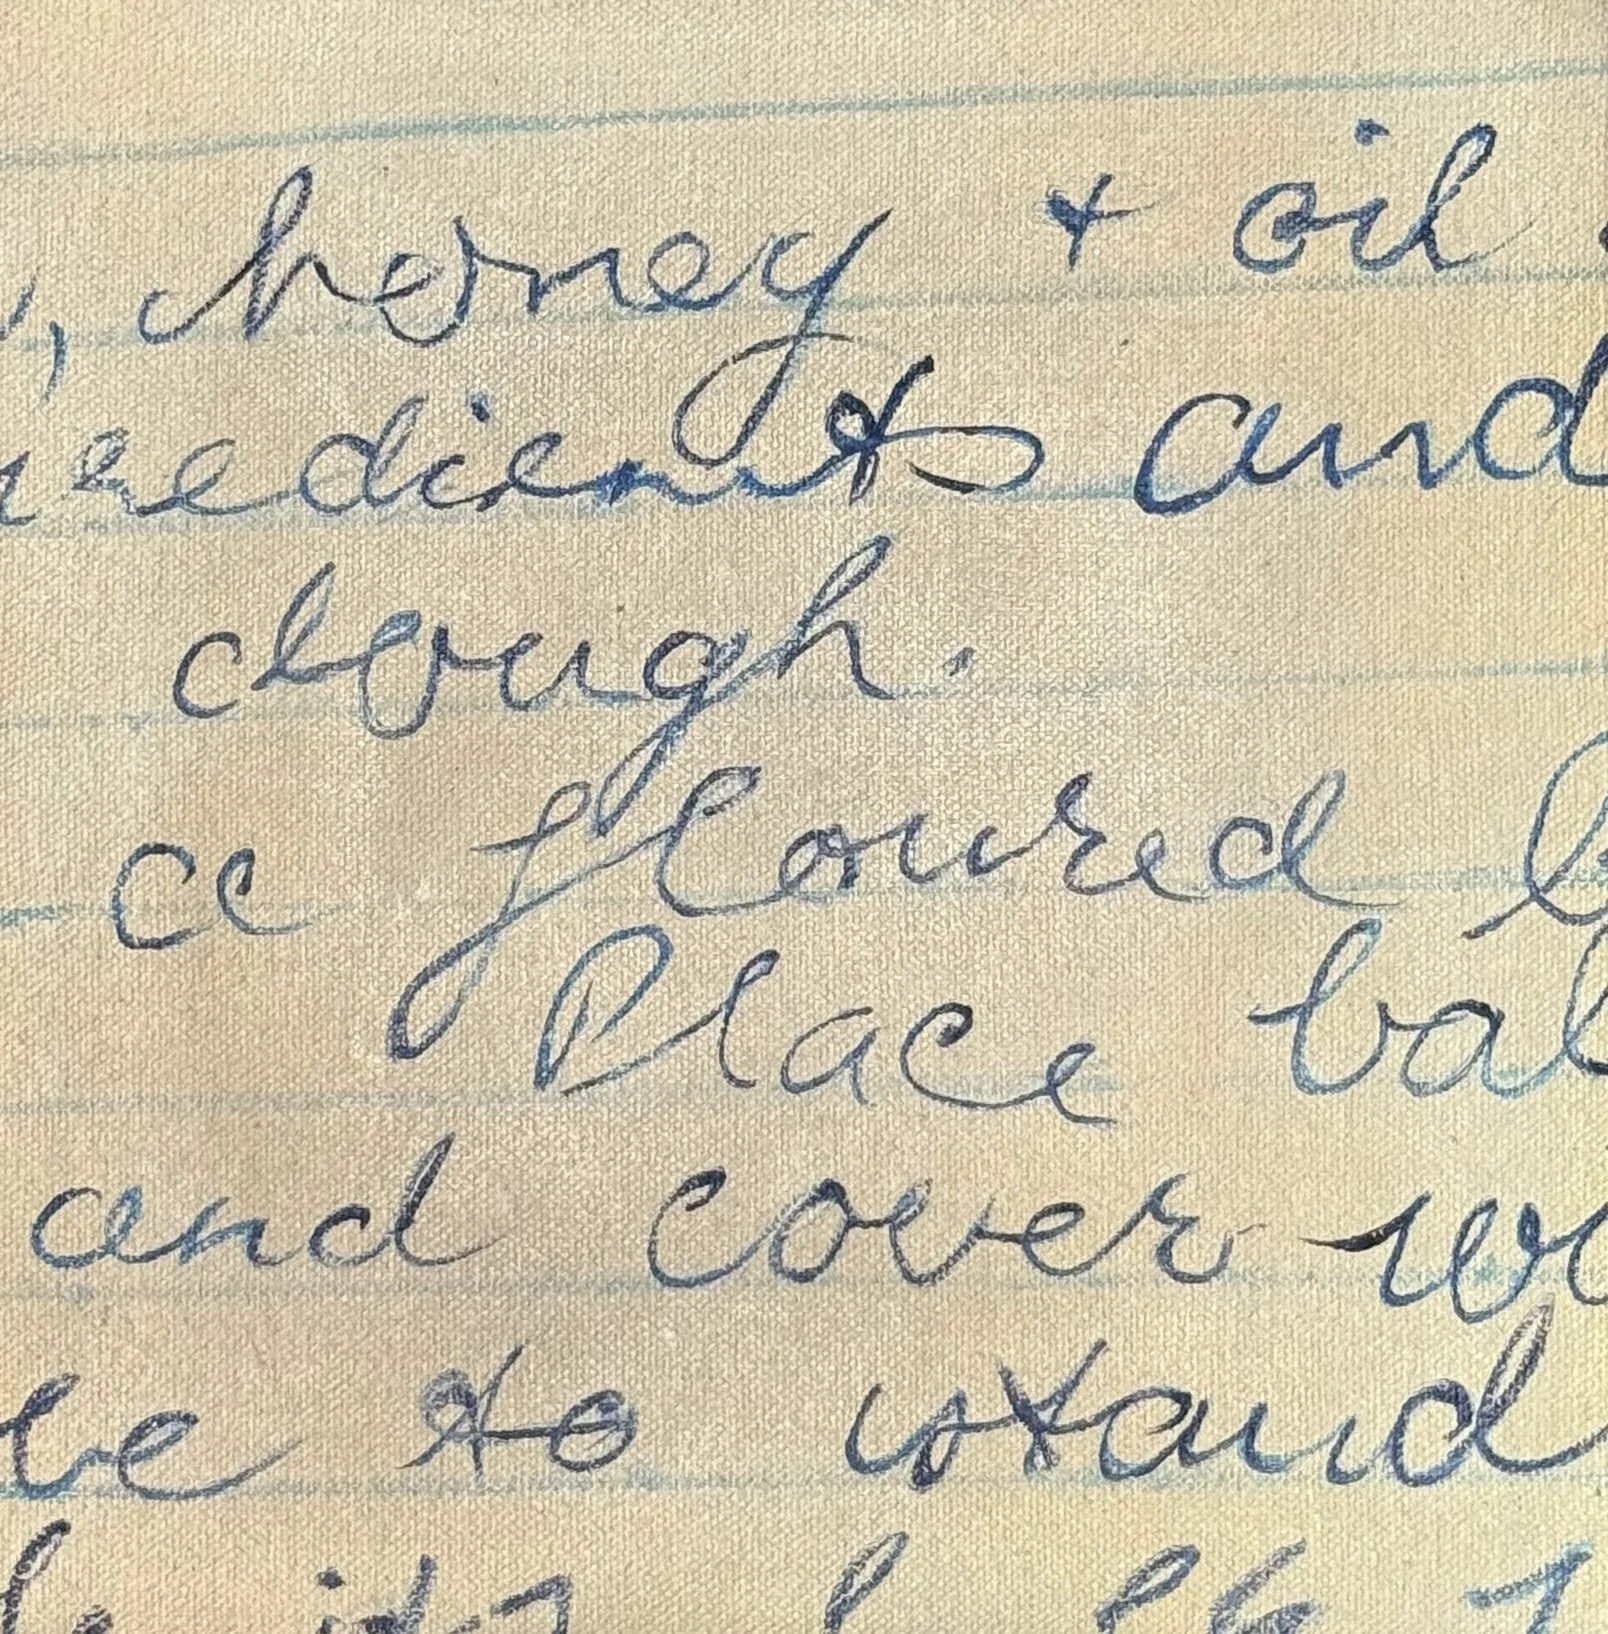 , honey + oil
redients and
dough.
a floured
Place bal
and cover
to stand